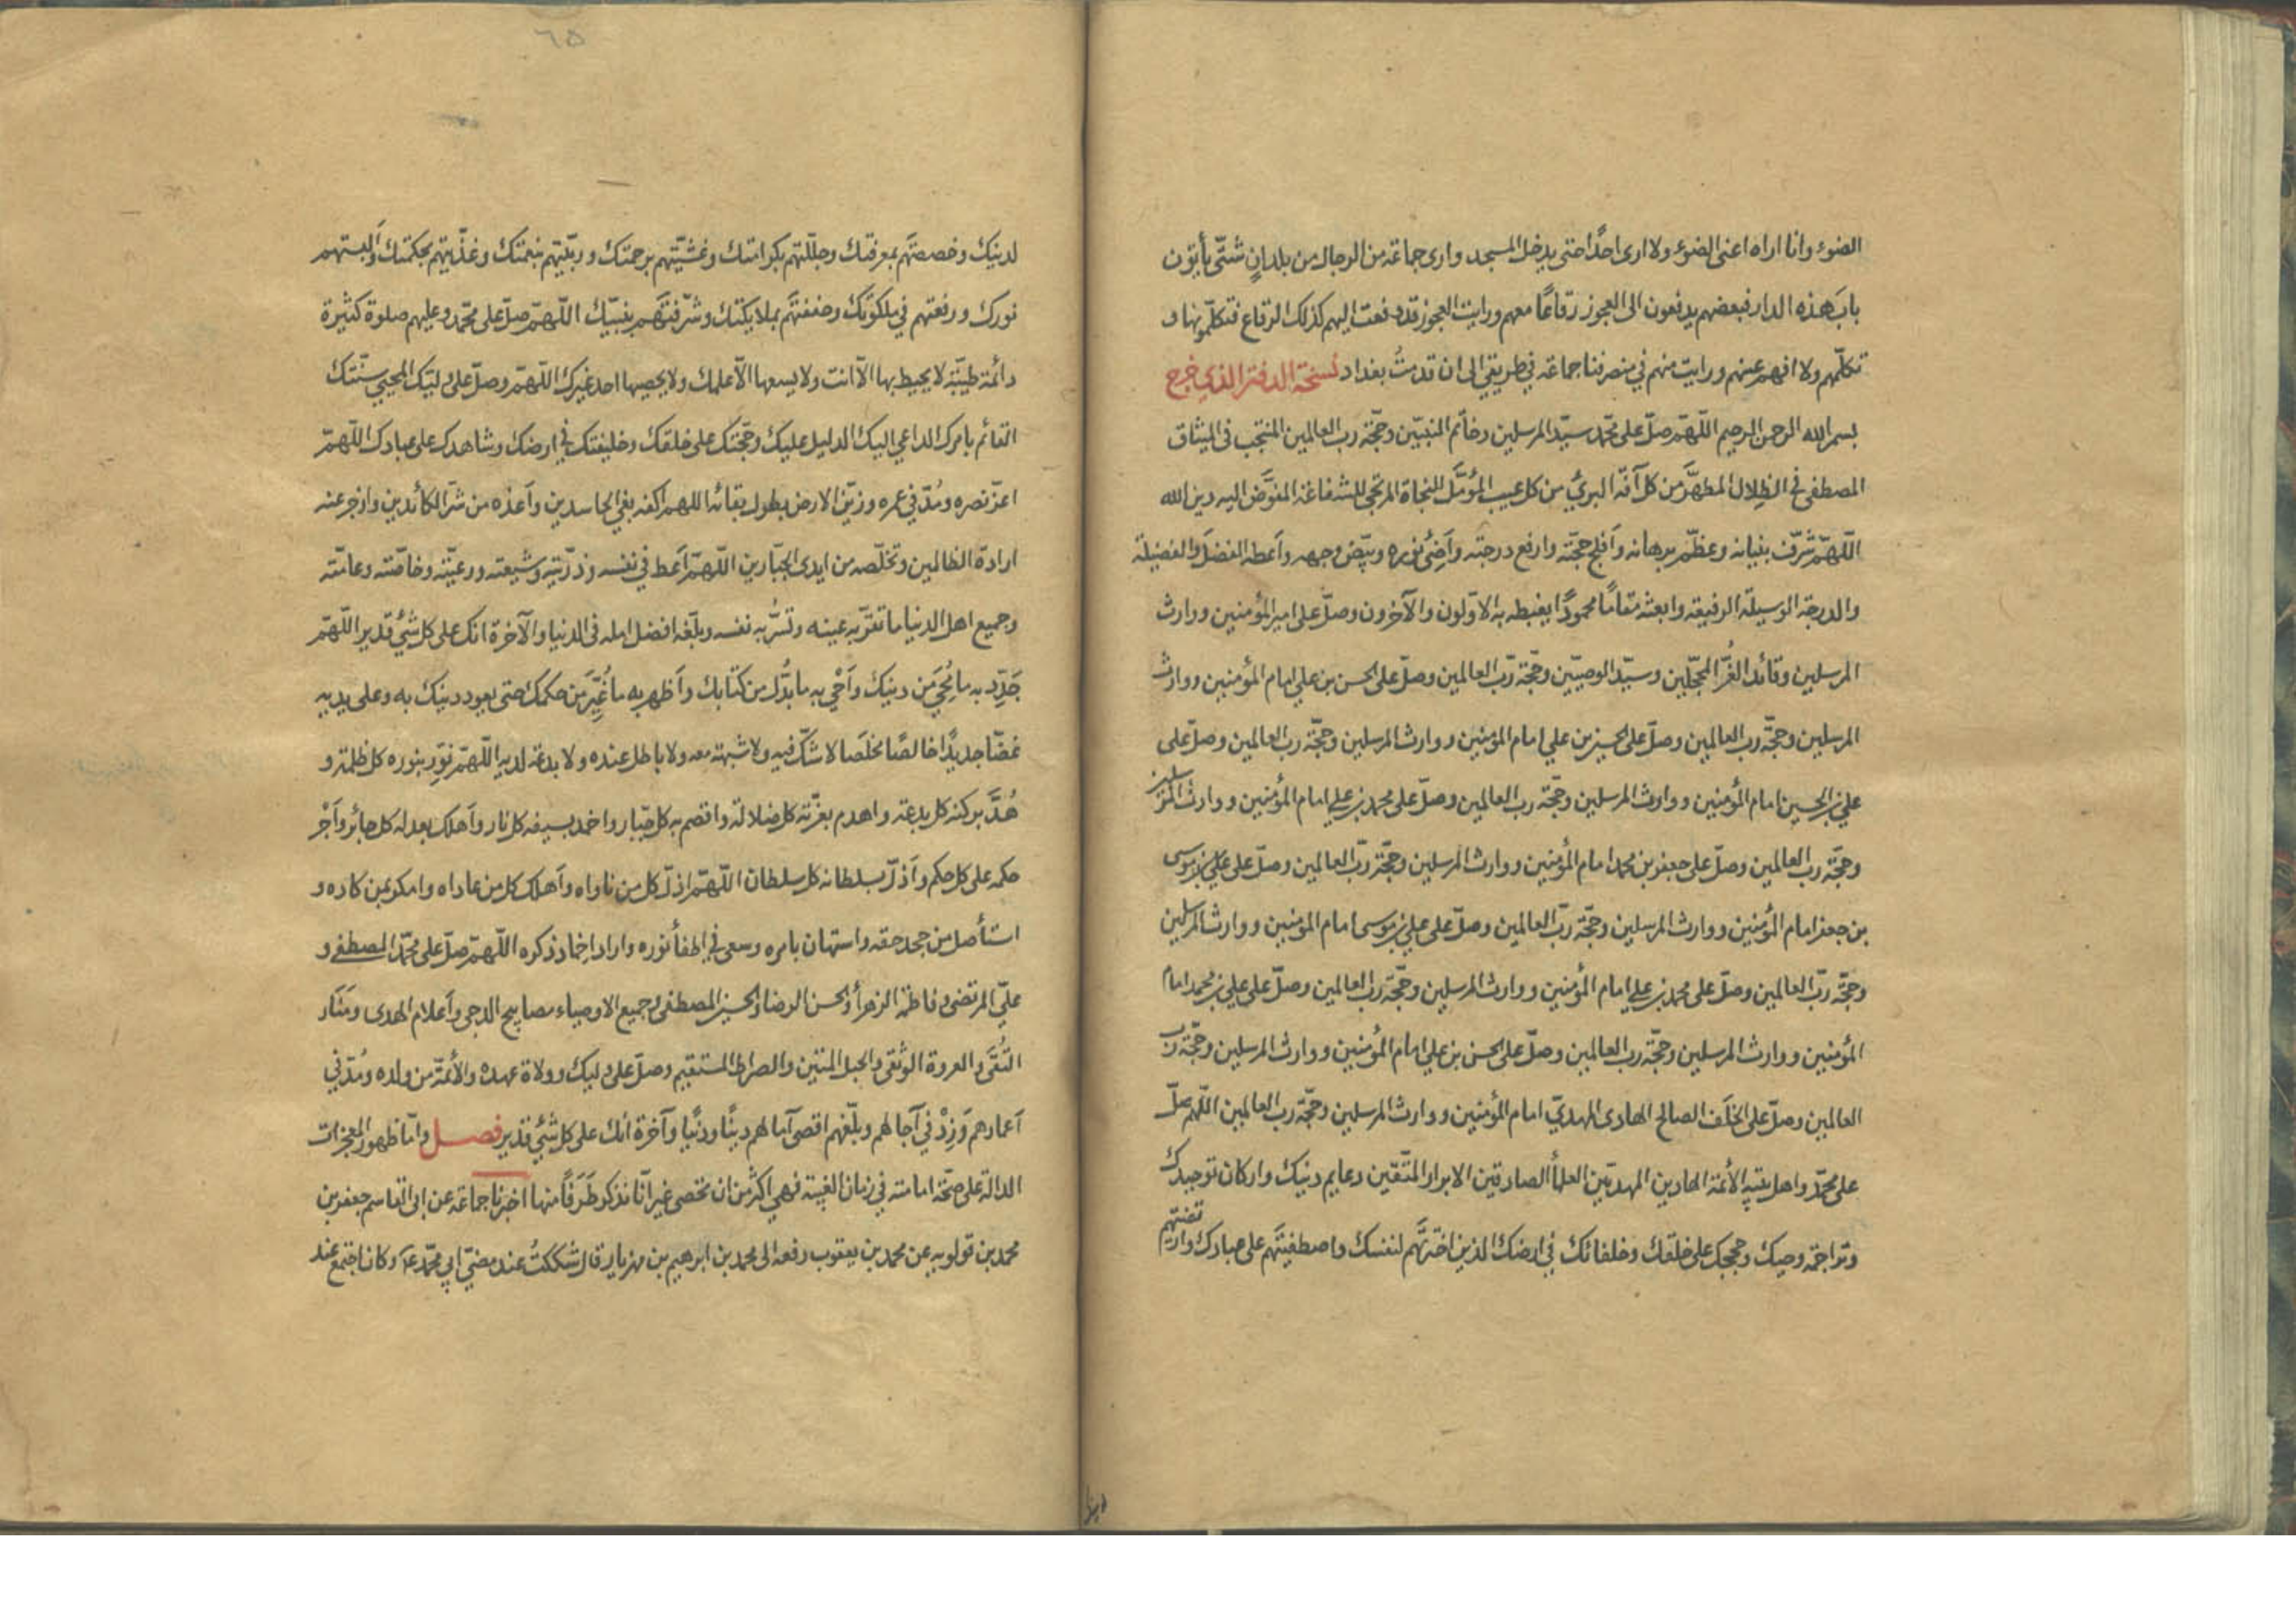 الضوء وانا اراه اعنى الضوء ولا ارى احدًا حتى يدخل المسجد وارى جماعة من الرجال من بلدانٍ شتّى يأتون
بابَ هذه الدار فبعضهم يدفعون الى العجوز رقاعًا معهم ورايت العجوز قد دفعت اليهم كذلك الرقاع فتكلّمونها و
تكلّمهم ولا افهم عنهم ورايت منهم في منصرفنا جماعة في طريقي الى ان قدمتُ بغداد نسخة الدفتر الذي خرج
بسم الله الرحمن الرحيم اللّهمّ صلّ على محمّد سيّد المرسلين وخاتم النبيّين وحجّة ربّ العالمين المنتجب فى الميثاق
المصطفى فى الظِلال المطهَّر من كل آفة البريّ من كل عيب المؤمَّل للنجاة المرتجى للشفاعة المفوَّض اليه دين الله
اللّهمّ شرّف بنيانه وعظّم برهانه وأفلج حجّته وارفع درجته وأضئ نوره وبيّض وجهه وأعطه الفضلَ والفضيلة
والدرجة الوسيلة الرفيعة وابعثه مقامًا محمودًا يغبطه به الاوّلون والآخرون وصلّ على امير المؤمنين ووارث
المرسلين وقائد الغُرّ المحجّلين وسيّد الوصيّين وحجّة ربّ العالمين وصلّ على الحسن بن علي امام المؤمنين ووارث
المرسلين وحجّة رب العالمين وصلّ على الحسين بن علي امام المؤمنين ووارث المرسلين وحجّة ربّ العالمين وصلّ على
علي بن الحسين امام المؤمنين ووارث المرسلين وحجّة رب العالمين وصلّ على محمد بن علي امام المؤمنين ووارث المرسلين
وحجّة ربّ العالمين وصلّ على جعفر بن محمد امام المؤمنين ووارث المرسلين وحجّة ربّ العالمين وصلّ على علي بن موسى
بن جعفر امام المؤمنين ووارث المرسلين وحجّة ربّ العالمين وصلّ على علي بن موسى امام المؤمنين ووارث المرسلين
وحجّة ربّ العالمين وصلّ على محمد بن علي امام المؤمنين ووارث المرسلين وحجّة ربّ العالمين وصلّ على علي بن محمد امام
المؤمنين ووارث المرسلين وحجّة رب العالمين وصلّ على الحسن بن علي امام المؤمنين ووارث المرسلين وحجّة ربّ
العالمين وصلّ على الخلَف الصالح الهادى المهديّ امام المؤمنين ووارث المرسلين وحجّة ربّ العالمين اللّهم صلّ
على محمّد واهل بيته الأئمة الهادين المهديّين العلمأ الصادقين الابرار المتّقين دعايم دينك واركان توحيدك
وتراجمة وحيك وحججك على خلقك وخلفائك في ارضك الذين اخترتَهم لنفسك واصطفيتَهم على عبادك وارتضيتهم
لدينك وخصصتَهم بمعرفتك وجلّلتهم بكرامتك وغشّيتهم برحمتك وربّيتهم بنعمتك وغذّيتهم بحكمتك وألبستهم
نورك ورفعتهم في ملكوتك وحففتهَم بملايكتك وشرّفتَهم بنبيّك اللّهمّ صلّ على محمّد وعليهم صلوة كثيرة
دائمة طيّبة لا يحيط بها الاّ انت ولا يسعها الاّ علمك ولا يحصيها احد غيرك اللّهمّ وصلّ على وليّك المحيي سنّتك
القائم بامرك الداعي اليك الدليل عليك وحجّتك على خلقك وخليفتك في ارضك وشاهدك على عبادك اللّهمّ
اعزّ نصره ومُدّ في عمره وزيّن الارض بطول بقائه اللهم اكفه بغي الحاسدين وأعذه من شرّ الكائدين وازجر عنه
ارادة الظالمين وتخلّصه من ايدى الجبّارين اللّهمّ أعط في نفسه وذرّيّته وشيعته ورعيّته وخاصّته وعامّته
وجميع اهل الدنيا ما تقرّ به عينه وتسُرُّ به نفسه وبلّغه افضل امله فى الدنيا والآخرة انك على كل شئ قدير اللّهمّ
جَدِّد به ما مُحِيَ من دينك وأحْي به ما بدّل من كتابك وأظهر به ما غُيِّرَ من حكمك حتى يعود دينك به وعلى يديه
غضّا جديدًا خالصًا مخلَصًا لا شكّ فيه ولا شبهة معه ولا باطل عنده ولا بدعة لديه اللّهمّ نَوِّر بنوره كل ظلمة و
هُدَّ بركنه كل بدعة واهدم بعزّته كل ضلالة واقصم به كل جبّار واخمد بسيفه كل نار وأهلك بعدله كل جائر وأجْرِ
حكمه على كل حكم وأذلّ بسلطانه كل سلطان اللّهمّ اذلّ كل من ناواه وأهلك كل من عاداه وامكر بمن كاده و
استأصل من جحد حقه واستهان بامره وسعى في اطفأ نوره واراد اخماد ذكره اللّهمّ صلّ على محمّد المصطفى و
عليّ المرتضى وفاطمة الزهرأ والحسن الرضا والحسين المصطفى وجميع الاوصياء مصابيح الدجى وأعلام الهدى ومَنَار
التُقَى والعروة الوثقى والحبل المتين والصراط المستقيم وصلّ على وليك وولاة عهده والأئمّة من ولده ومُدّ في
أعمارهم وَزِدْ في آجالهم وبلّغهم اقصى آمالهم دينًا ودنًيا وآخرة انك على كل شئ قدير فصل وامّا ظهور المعجزات
الدالة على صحّة امامته في زمان الغيبة فهي اكثر من ان تحصى غير انّا نذكر طَرَفًا منها اخبرنا جماعة عن ابى القاسم جعفر بن
محمد بن قولويه عن محمد بن يعقوب رفعه الى محمد بن ابرهيم بن مهزيار قال شككتُ عند مضيّ ابي محمّد ع وكان اجتمع عند